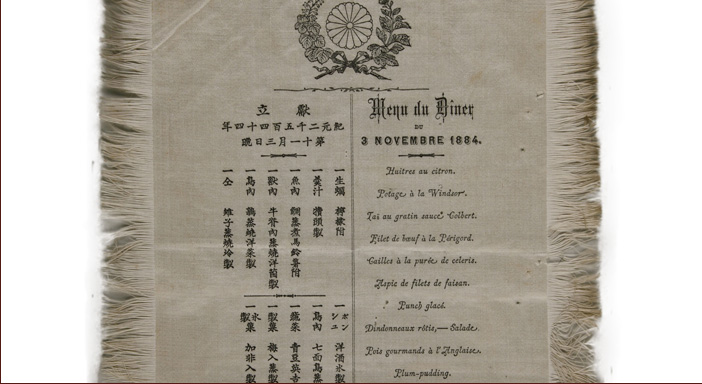 獻立
紀元二千五百四十四年
第十一月三日晩
一生蠣 檸檬附
一羹汁 製
一魚肉 鯛蒸煮馬鈴薯附
一獸肉 牛脊肉蒸燒洋菌製
一鳥肉 鶉蒸燒洋菜製
一仝 雉子蒸燒冷製
一ポンシユ 洋酒氷製
一鳥肉 七面鳥蒸
一蔬菜 青豆英吉
一製菓 梅入蒸製
一氷製菓 加非入製
Menu du Diner
DU
3 NOVEMBRE 1884.
Huitres au citron.
Potage à la Windsor.
Tai au gratin sauce Colbert.
Filet de bœuf à la Périgord.
Cailles à la purée de celeris.
Aspic de filets de faisan.
Punch glacé.
Dindonneaux rôtis,— Salade.
Pois gourmands à l'Anglaise.
Plum-pudding.